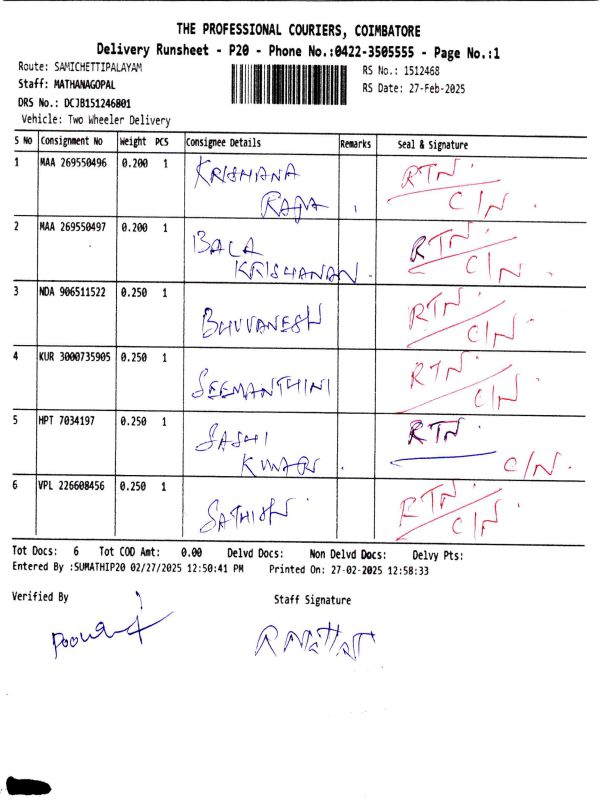 THE PROFESSIONAL COURIERS, COIMBATORE
Delivery Runsheet - P20 - Phone No.:0422-3505555 - Page No.:1
Route: SAMICHETTIPALAYAM
RS No.: 1512468
Staff: MATHANAGOPAL
RS Date: 27-Feb-2025
DRS No.: DCJB151246801
Vehicle: Two Wheeler Delivery
S No Consignment No Weight PCS Consignee Details Remarks Seal & Signature
1 MAA 269550496 0.200 1 KRISHANA RTN
RAJA C/N
2 MAA 269550497 0.200 1 BALA RTN
KRISHANAN C/N
3 NDA 906511522 0.250 1 BHUVANESH RTN
C/N
4 KUR 3000735905 0.250 1 SEEMANTHINI RTN
C/N
5 HPT 7034197 0.250 1 SASHI RTN
KUMAR C/N
6 VPL 226608456 0.250 1 SATHISH RTN
C/N
Tot Docs: 6 Tot COD Amt: 0.00 Delvd Docs: Non Delvd Docs: Delvy Pts:
Entered By :SUMATHIP20 02/27/2025 12:50:41 PM Printed On: 27-02-2025 12:58:33
Verified By Staff Signature